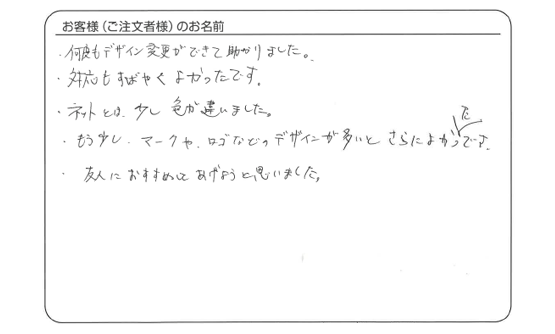 お客様（ご注文者様）のお名前
・何度もデザイン変更ができて助かりました。
・対応もすばやくよかったです。
・ネットとは、少し色が違いました。
・もう少し、マークや、ロゴなどのデザインが多いとさらによかったです。
・友人におすすめしてあげようと思いました。